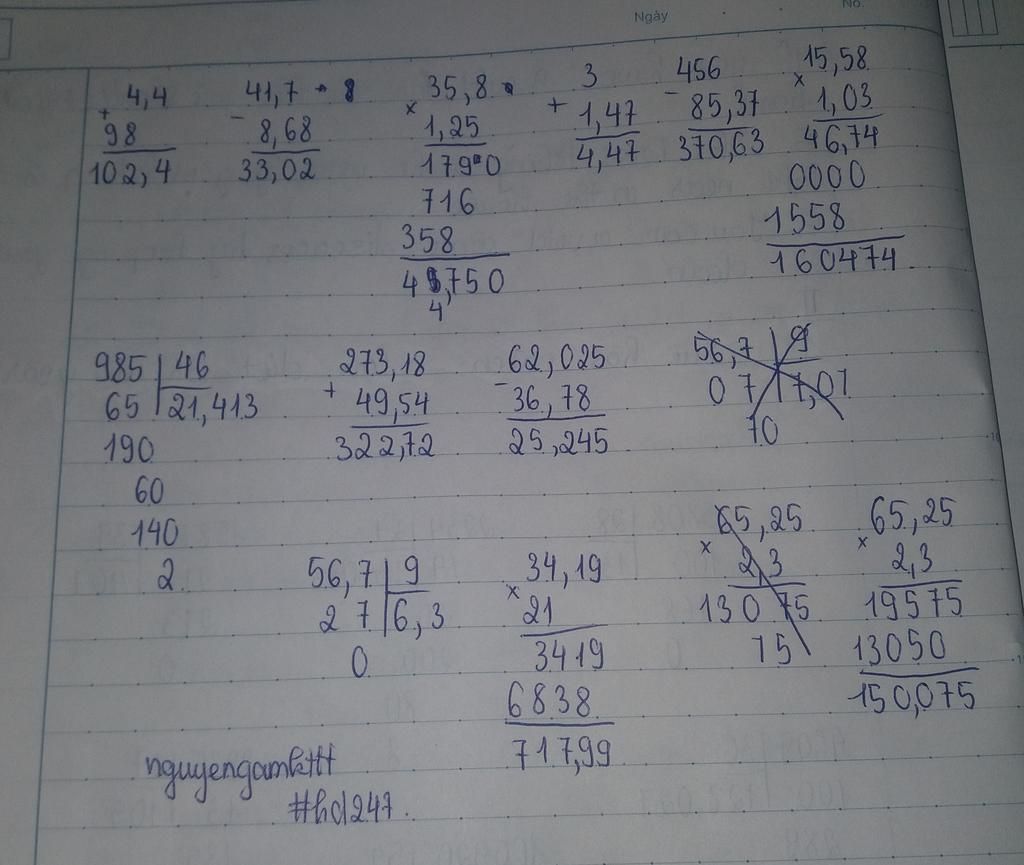 Ngày
No.
4,4
+
98
102,4
41,7
-
8,68
33,02
35,8
×
1,25
1790
716
358
44,750
3
+
1,47
4,47
456
-
85,37
370,63
15,58
×
1,03
46,74
0000
1558
160474
985 46
65 21,413
190
60
140
2
273,18
+
49,54
322,72
62,025
-
36,78
25,245
56,7 9
07 7,07
70
56,7 9
27 6,3
0
34,19
×
21
3419
6838
717,99
65,25
×
2,3
13075
15
65,25
×
2,3
19575
13050
150,075
#hd247.